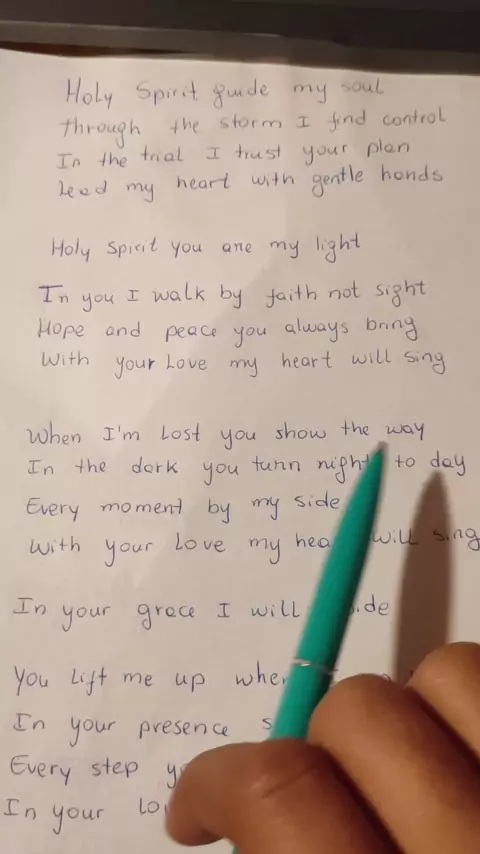 Holy Spirit guide my soul
through the storm I find control
In the trial I trust your plan
Lead my heart with gentle hands
Holy Spirit you are my light
In you I walk by faith not sight
Hope and peace you always bring
With your Love my heart will sing
When I'm Lost you show the way
In the dark you turn night to day
Every moment by my side
With your Love my will sing
In your grace I will
You Lift me up
In your presence
Every step
In your